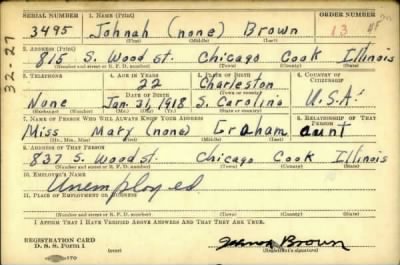 SERIAL NUMBER 1. NAME (Print) ORDER NUMBER
3495 Johnah (none) Brown 13
(First) (Middle) (Last)
2. ADDRESS (Print)
815 S. Wood st. Chicago Cook Illinois
(Number and street or R. F. D. number) (Town) (County) (State)
32-27
3. TELEPHONE 4. AGE IN YEARS 5. PLACE OF BIRTH 6. COUNTRY OF CITIZENSHIP
22 Charleston
DATE OF BIRTH (Town or county)
None Jan. 31, 1918 S. Carolina U.S.A.
(Exchange) (Number) (Mo.) (Day) (Yr.) (State or country)
7. NAME OF PERSON WHO WILL ALWAYS KNOW YOUR ADDRESS 8. RELATIONSHIP OF THAT PERSON
Miss Mary (none) Graham aunt
(Mr., Mrs., Miss) (First) (Middle) (Last)
9. ADDRESS OF THAT PERSON
837 S. Wood st. Chicago Cook Illinois
(Number and street or R. F. D. number) (Town) (County) (State)
10. EMPLOYER'S NAME
Unemployed
11. PLACE OF EMPLOYMENT OR BUSINESS
(Number and street or R. F. D. number) (Town) (County) (State)
I AFFIRM THAT I HAVE VERIFIED ABOVE ANSWERS AND THAT THEY ARE TRUE.
REGISTRATION CARD
D. S. S. Form 1 Brown
(Registrant's signature)